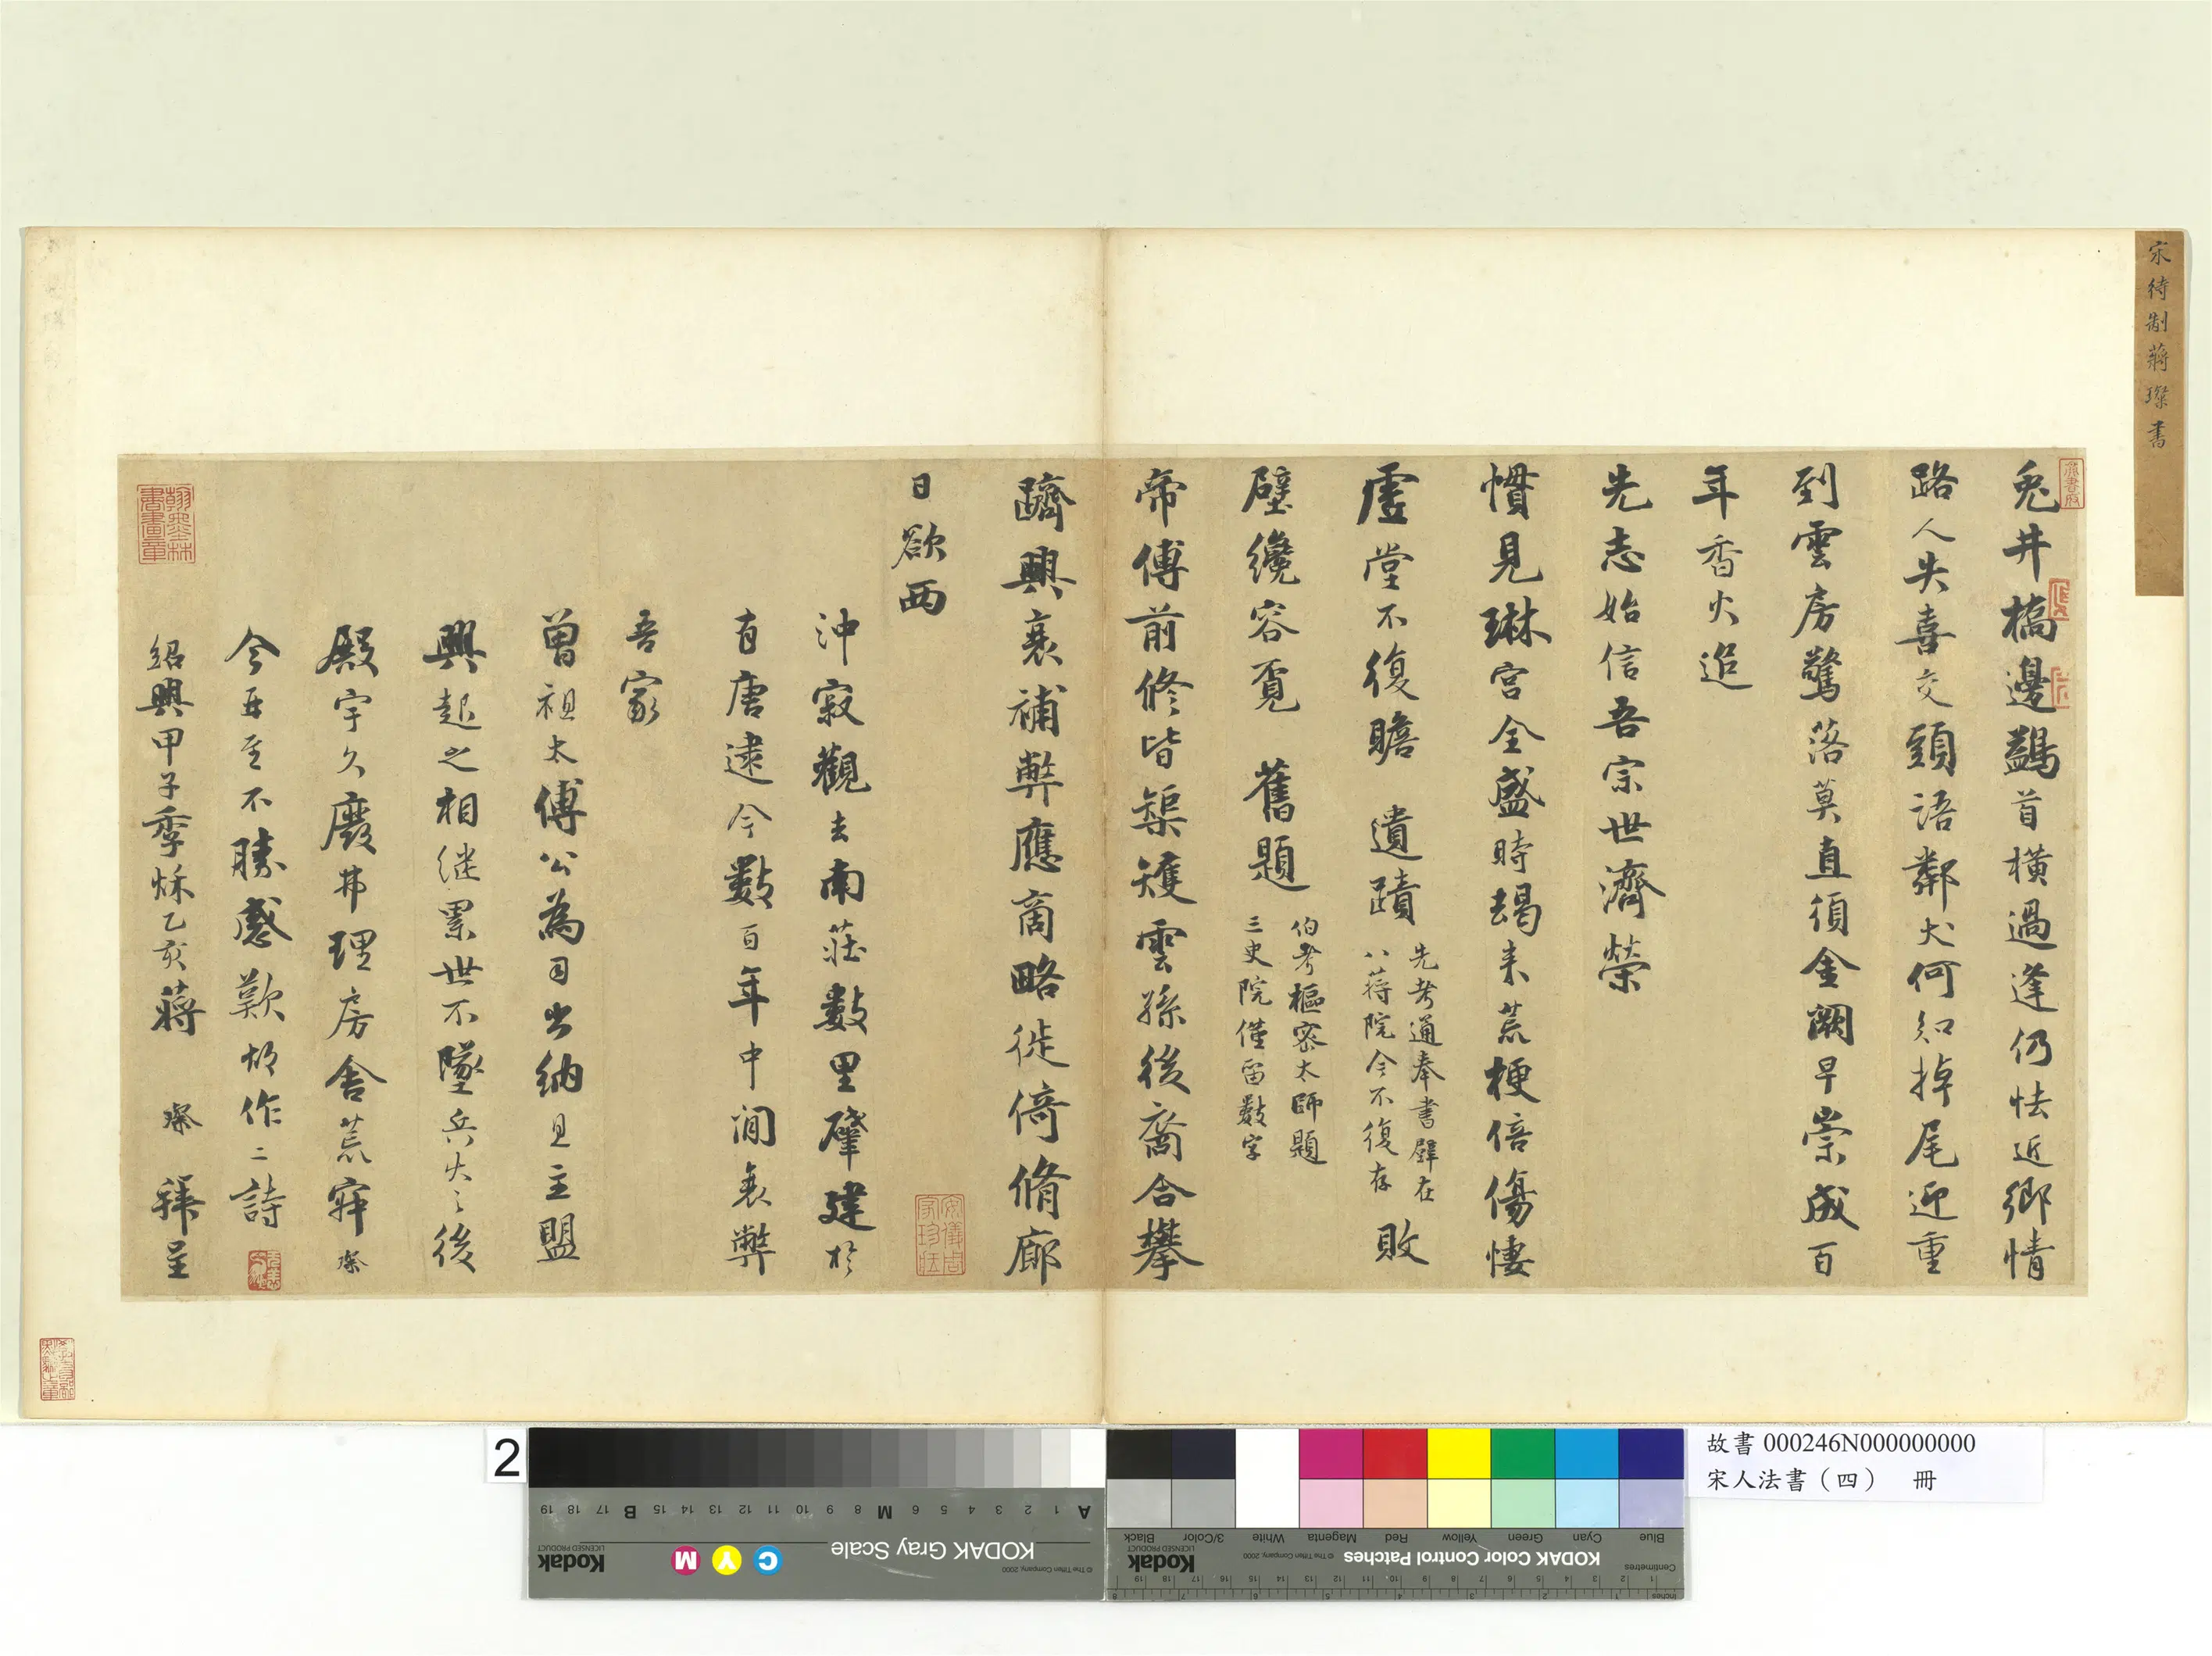 宋待制蔣璨書
兎井橋邊鷁首橫過逢仍怯近鄉情
路人失喜交頭語鄰犬何知掉尾迎重
到雲房驚落莫直須金闕早崇成百
年香火追
先志始信吾宗世濟榮
慣見琳宮全盛時朅来荒梗倍傷悽
虛堂不復瞻 遺蹟 先考通奉書壁在八蔣院今不復存 敗
壁纔容覔 舊題 伯考樞密太師題三史院僅留數字
帝傅前修皆榘矱雲孫後裔合攀
躋興衰補弊應商略徙倚脩廊
日欲西
沖寂觀去南莊數里肇建於
有唐逮今數百年中間衰弊
吾家
曾祖太傅公為司出納且主盟
興起之相继累世不墜兵火之後
殿宇久廢弗理房舍荒穽璨
今再至不勝感歎故作二詩
紹興甲子季秌乙亥蔣 璨 拜呈
翰墨林書畫章
安儀周家珍藏
2
KODAK Gray Scale
© The Tiffen Company, 2000
Kodak
LICENSED PRODUCT
C Y M
A 1 2 3 4 5 6 M 8 9 10 11 12 13 14 15 B 17 18 19
KODAK Color Control Patches
© The Tiffen Company, 2000
Kodak
LICENSED PRODUCT
Blue Cyan Green Yellow Red Magenta White 3/Color Black
Centimetres
Inches
故書 000246N000000000
宋人法書（四） 冊